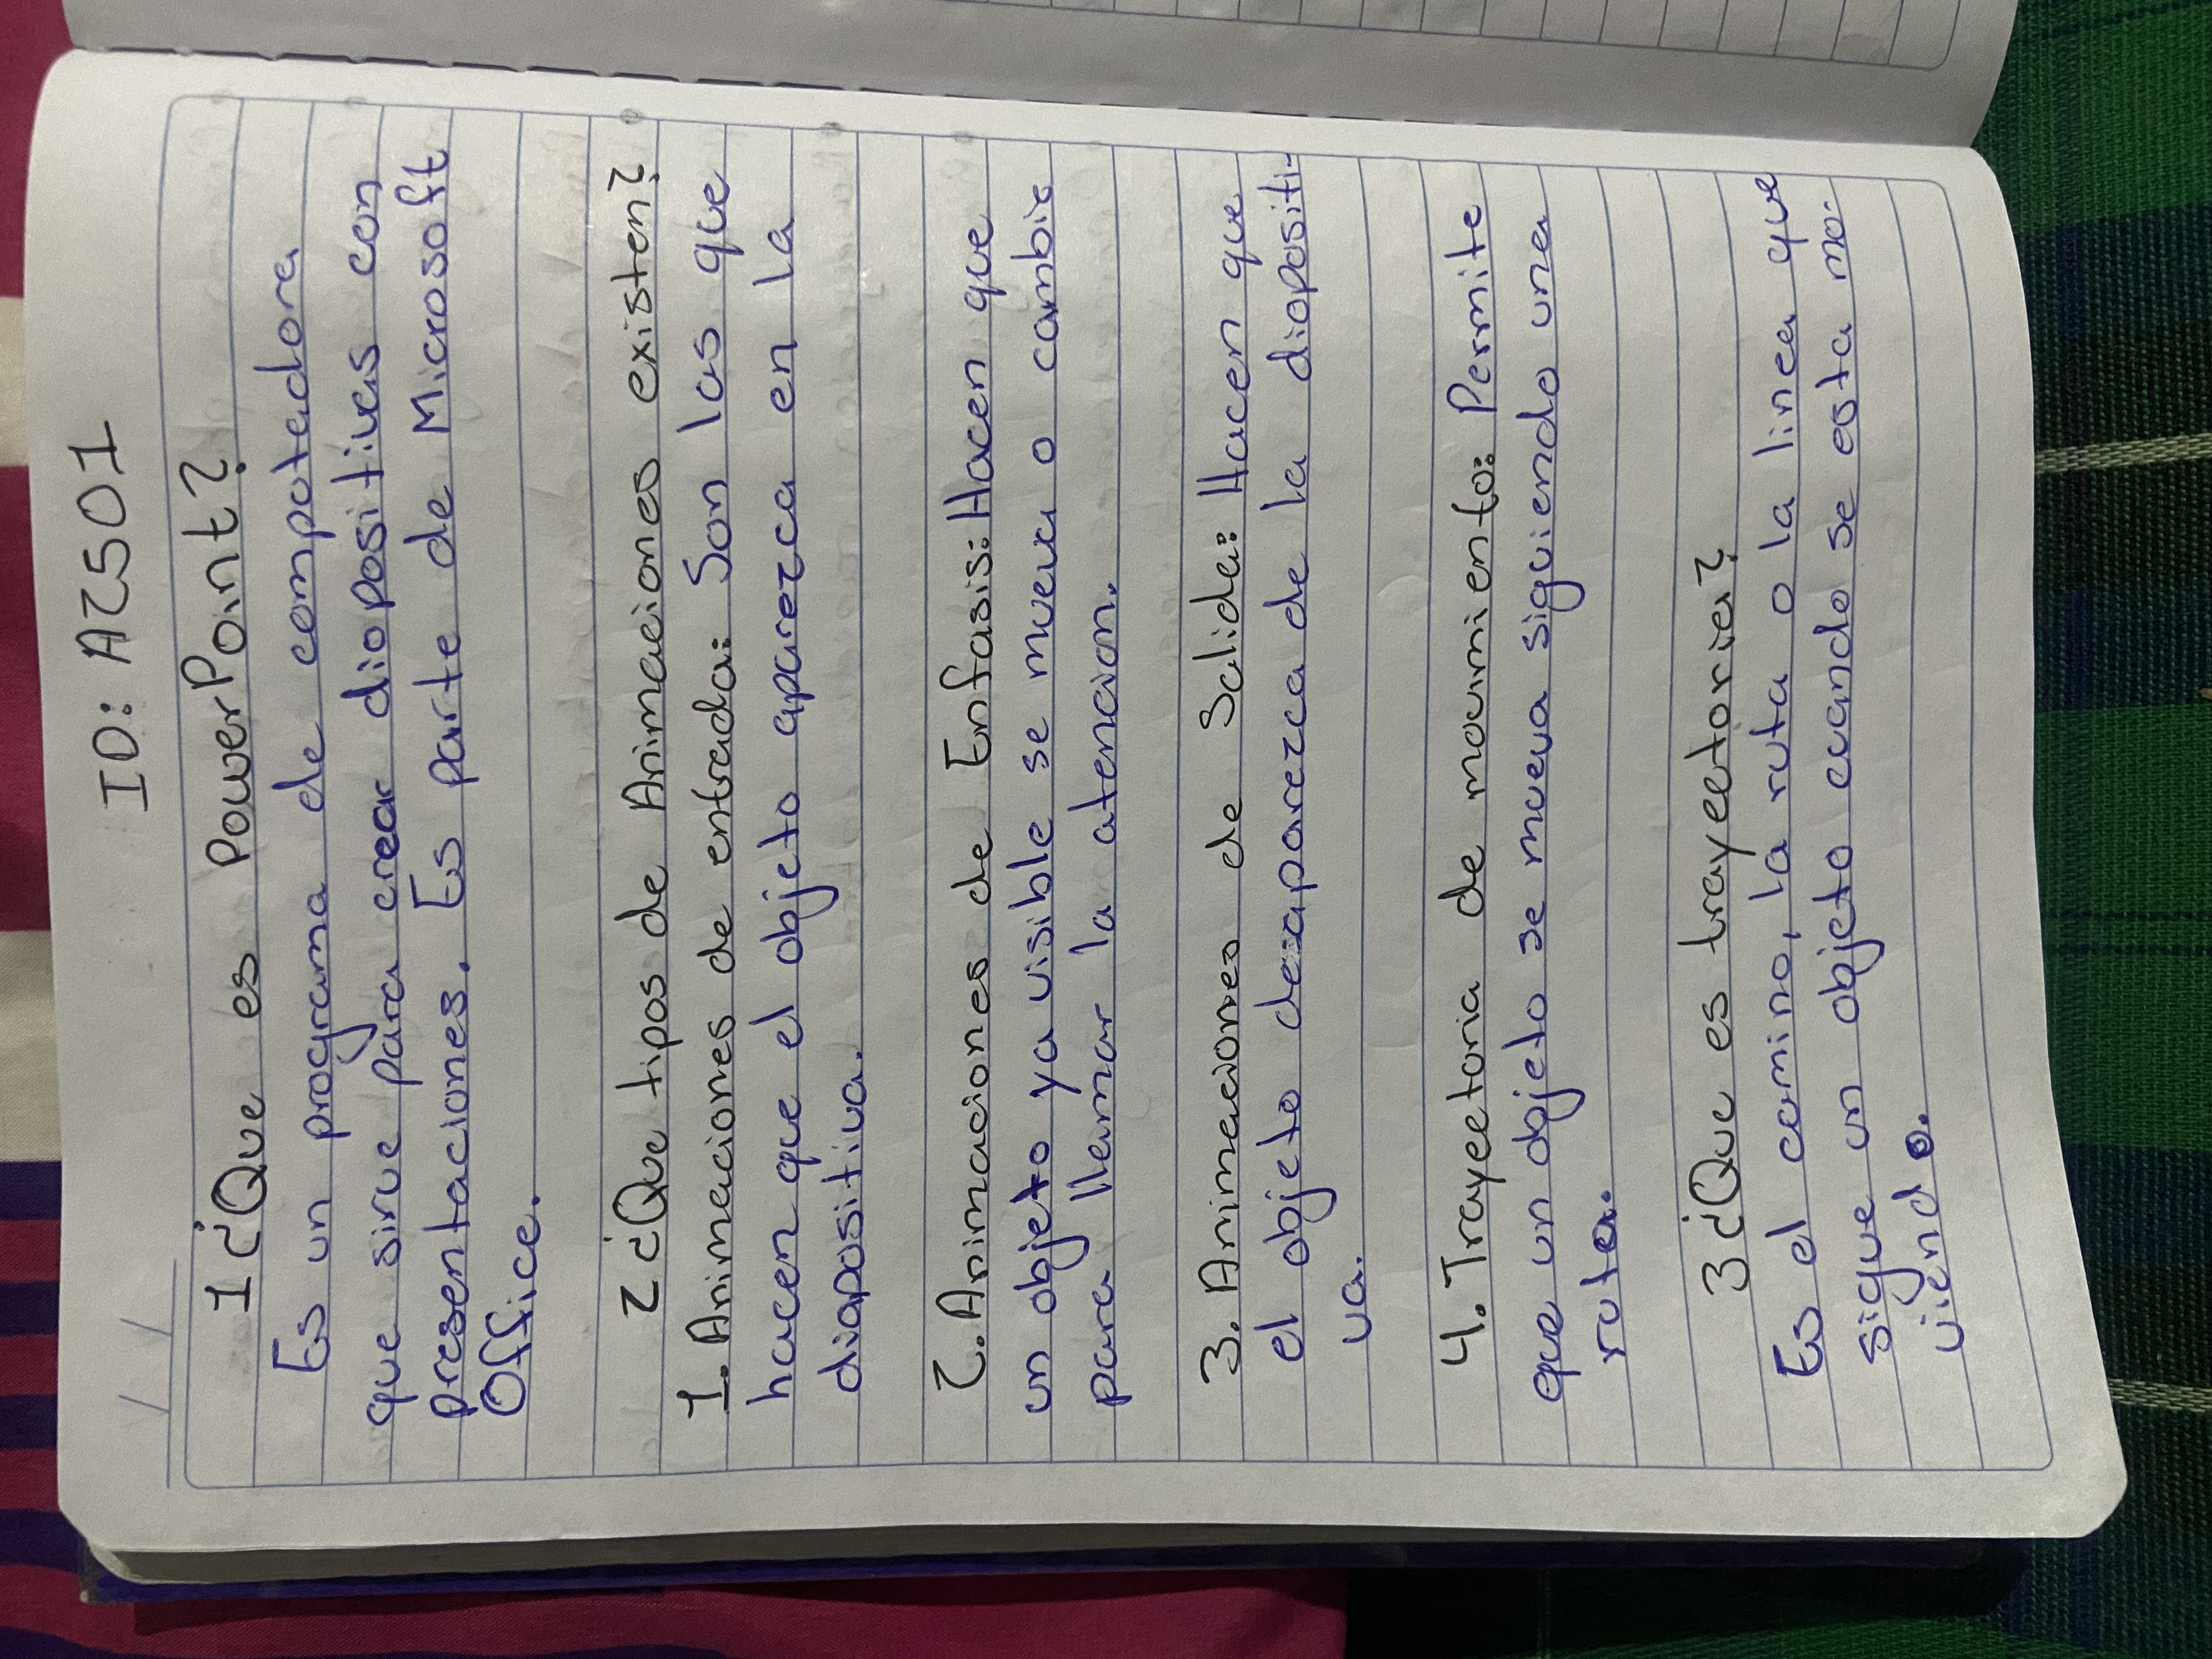 ID: AZ501
1 ¿Que es PowerPoint?
Es un programa de compotadora
que sirve para crear dioposítivas con
presentaciones. Es parte de Microsoft
Office.
2 ¿Que tipos de Animaciones existen?
1. Animaciones de entrada: Son las que
hacen que el objeto aparezca en la
diapositiva.
2. Animaciones de Enfasis: Hacen que
un objeto ya visible se mueva o cambie
para llamar la atencion.
3. Animaciones de Salida: Hacen que
el objeto desaparezca de la diopositi-
va.
4. Trayectoria de movimiento: Permite
que un objeto se mueva siguiendo una
ruta.
3 ¿Que es trayectoria?
Es el camino, la ruta o la linea que
sigue un objeto cuando se esta mo-
viendo.